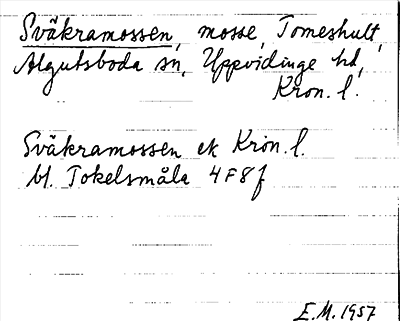 Sväkramossen, mosse, Tomeshult,
Algutsboda sn, Uppvidinge hd,
Kron. l.
Sväkramossen ek Kron. l.
bl. Tokelsmåla 4F8f
E.M. 1957